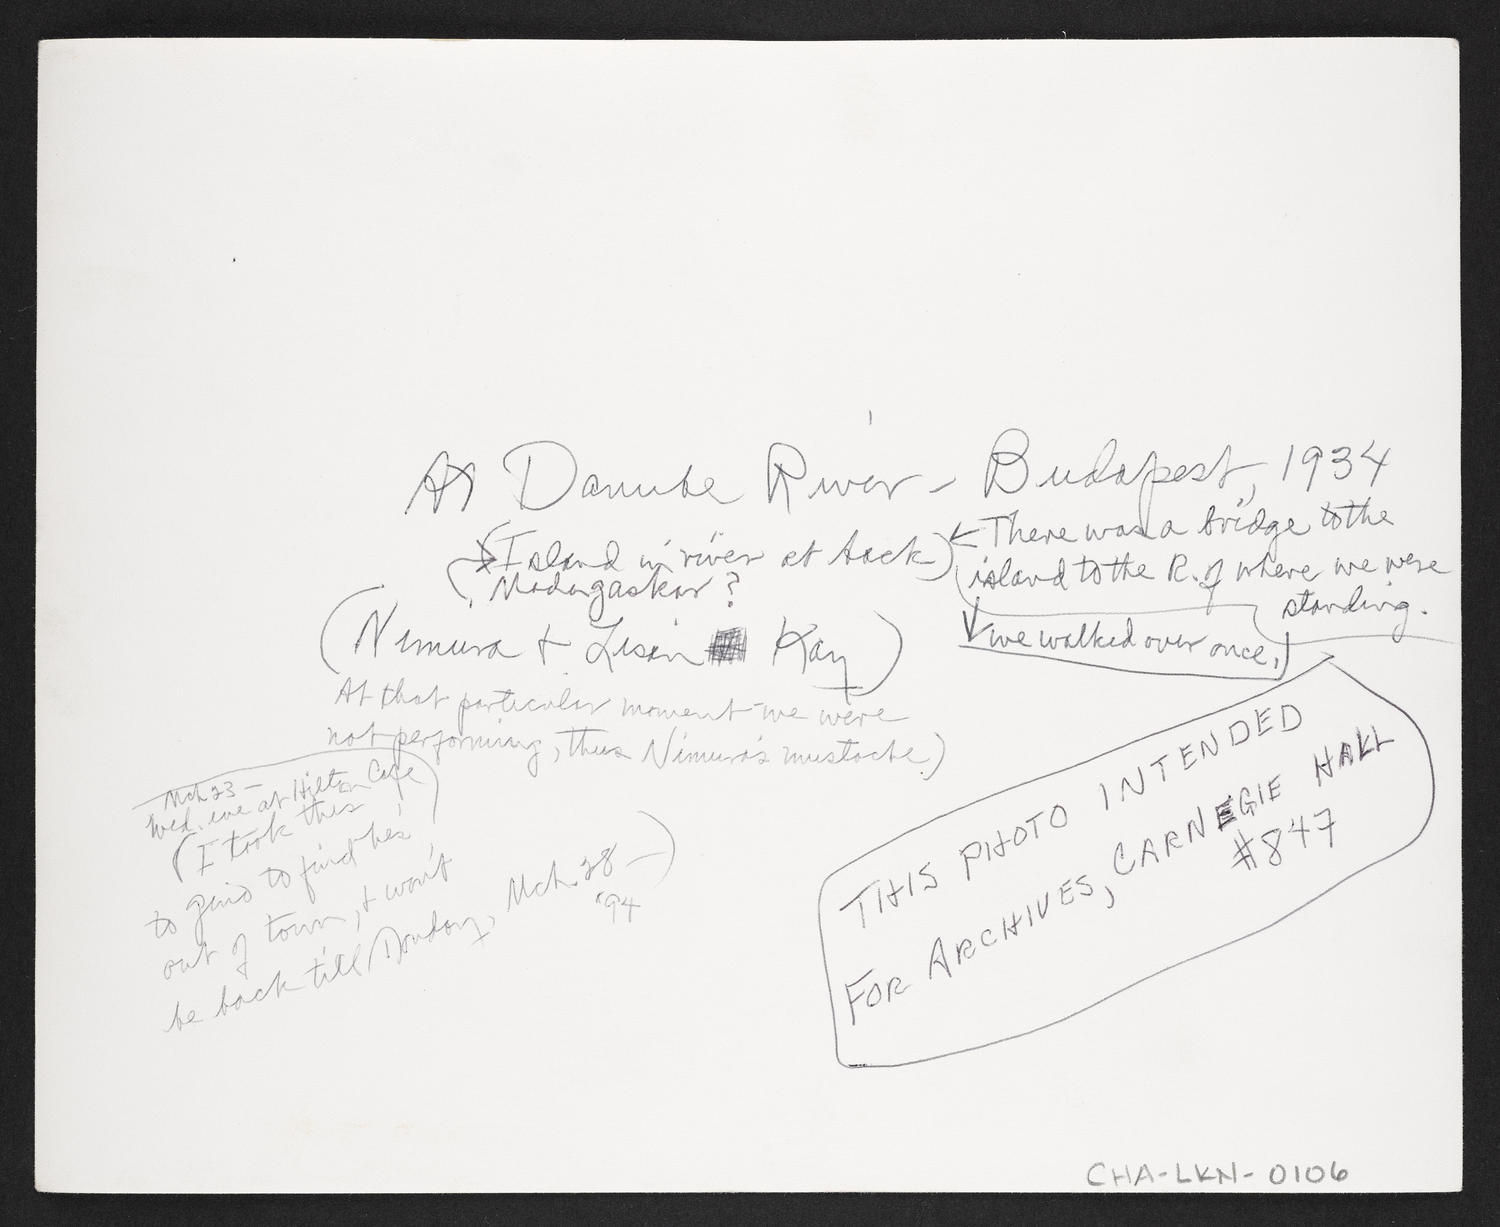 At Danube River - Budapest, 1934
(Island in river at back)
Madagaskar?
There was a bridge to the
island to the R. of where we were
standing.
we walked over once.
(Nimura + Lisan Kay)
At that particular moment - we were
not performing, thus Nimura's mustache.)
Mch 23 -
Wed. eve at Hilton Cafe
(I took this
to Gino to find he's
out of town, + won't
be back till Monday, Mch. 28 -)
'94
THIS PHOTO INTENDED
FOR ARCHIVES, CARNEGIE HALL
#847
CHA-LKN-0106